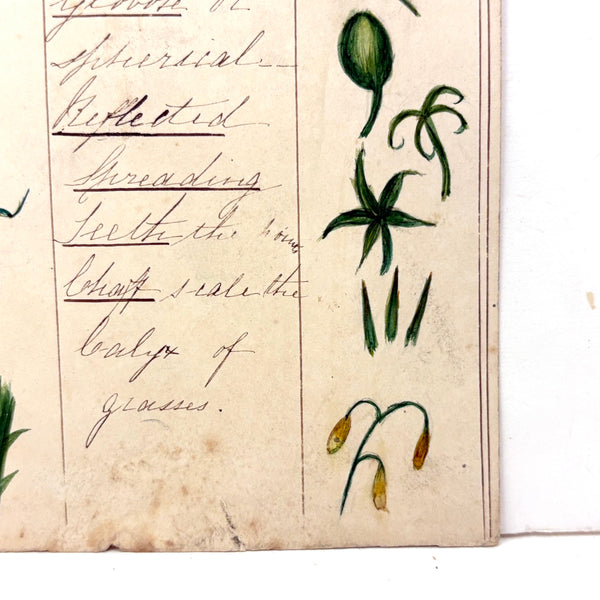 Globose or
spherical_
Reflected
Spreading
Teeth the
Chaff scale the
Calyx of
grasses.